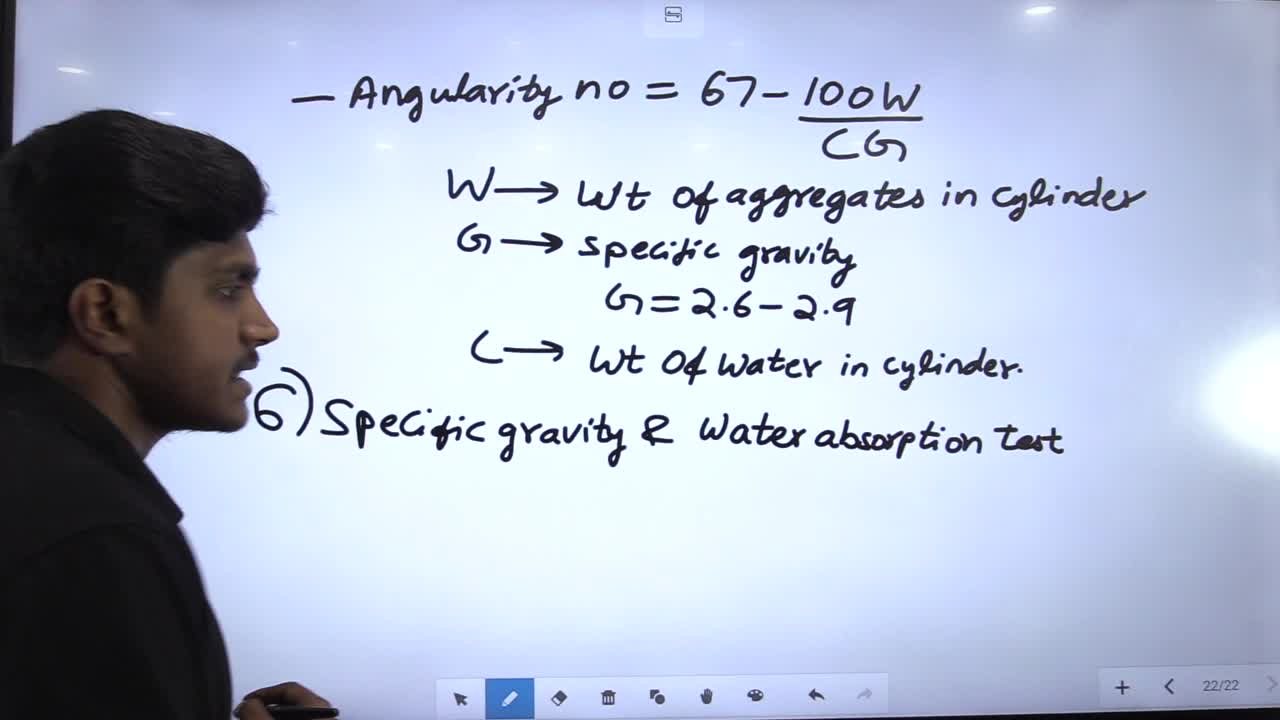 — Angularity no = 67 - 100W
CG
W → Wt of aggregates in cylinder
G → specific gravity
G = 2.6 - 2.9
C → Wt of water in cylinder.
6) Specific gravity & Water absorption test
22/22